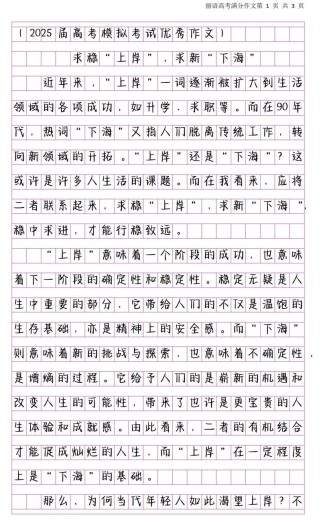 丽语高考满分作文第 1 页 共 3 页
(2025届高考模拟考试优秀作文)
求稳“上岸”,求新“下海”
近年来,“上岸”一词逐渐被扩大到生活
领域的各项成功,如升学,求职等。而在90年
代,热词“下海”又指人们脱离传统工作,转
向新领域的开拓。“上岸”还是“下海”?这
或许是许多人生活的课题。而在我看来,应将
二者联系起来,求稳“上岸”,求新“下海”,
稳中求进,才能行稳致远。
“上岸”意味着一个阶段的成功,也意味
着下一阶段的确定性和稳定性。稳定无疑是人
生中重要的部分,它带给人们的不仅是温饱的
生存基础,亦是精神上的安全感。而“下海”
则意味着新的挑战与探索,也意味着不确定性,
是增熵的过程。它给予人们的是崭新的机遇和
改变人生的可能性,带来了也许是更宝贵的人
生体验和成就感。由此看来,二者的有机结合
才能促成灿烂的人生,而“上岸”在一定程度
上是“下海”的基础。
那么,为何当代年轻人如此渴望上岸?不